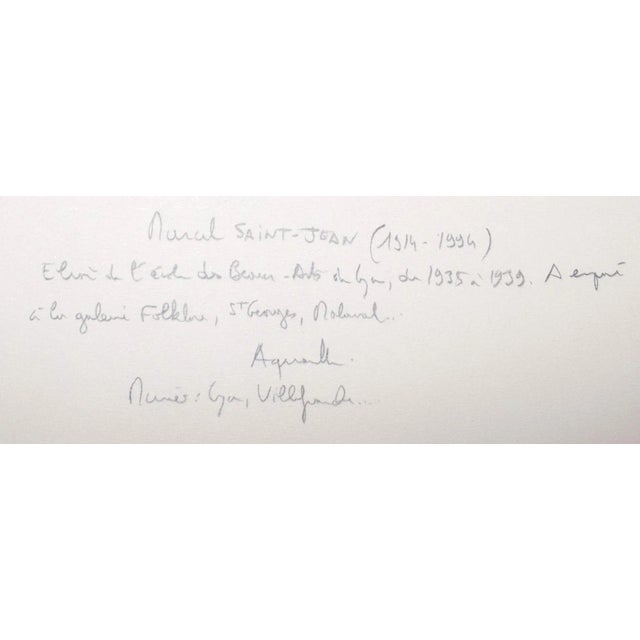 Marcel SAINT-JEAN (1914-1994)
Elève de l'école des Beaux-Arts de Lyon, de 1935 à 1939. A exposé
à la galerie Folklore, St Georges, Malaval...
Aquarelle.
Musées: Lyon, Villefranche....